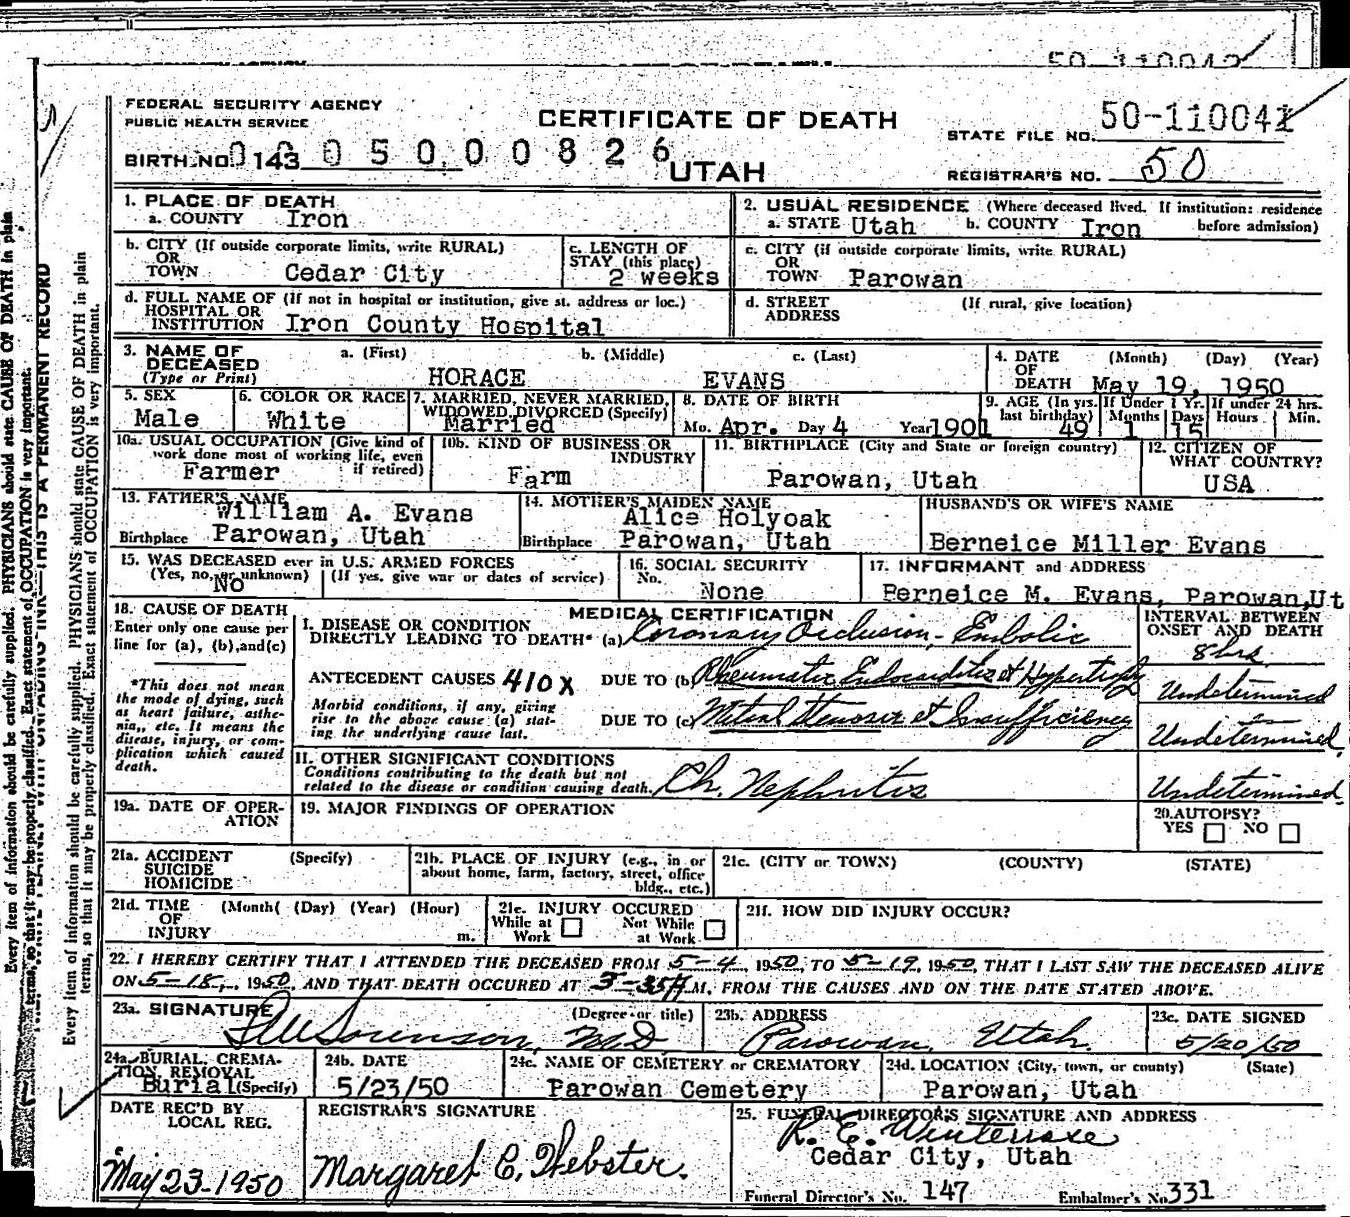 50-110042
FEDERAL SECURITY AGENCY
PUBLIC HEALTH SERVICE
CERTIFICATE OF DEATH
STATE FILE NO. 50-110041
BIRTH NO. 143
0 0 0 5 0 0 0 0 8 2 6
UTAH
REGISTRAR'S NO. 50
1. PLACE OF DEATH
a. COUNTY Iron
2. USUAL RESIDENCE (Where deceased lived. If institution: residence before admission)
a. STATE Utah b. COUNTY Iron
b. CITY (If outside corporate limits, write RURAL)
OR
TOWN Cedar City
c. LENGTH OF
STAY (this place)
2 weeks
c. CITY (if outside corporate limits, write RURAL)
OR
TOWN Parowan
d. FULL NAME OF (If not in hospital or institution, give st. address or loc.)
HOSPITAL OR
INSTITUTION Iron County Hospital
d. STREET (If rural, give location)
ADDRESS
3. NAME OF
DECEASED
(Type or Print)
a. (First) b. (Middle) c. (Last)
HORACE EVANS
4. DATE (Month) (Day) (Year)
OF
DEATH May 19, 1950
5. SEX
Male
6. COLOR OR RACE
White
7. MARRIED, NEVER MARRIED,
WIDOWED, DIVORCED (Specify)
Married
8. DATE OF BIRTH
Mo. Apr. Day 4 Year 1901
9. AGE (In yrs. last birthday) 49
If Under 1 Yr. Months 1 Days 15
If under 24 hrs. Hours Min.
10a. USUAL OCCUPATION (Give kind of
work done most of working life, even
if retired)
Farmer
10b. KIND OF BUSINESS OR
INDUSTRY
Farm
11. BIRTHPLACE (City and State or foreign country)
Parowan, Utah
12. CITIZEN OF
WHAT COUNTRY?
USA
13. FATHER'S NAME
William A. Evans
Birthplace Parowan, Utah
14. MOTHER'S MAIDEN NAME
Alice Holyoak
Birthplace Parowan, Utah
HUSBAND'S OR WIFE'S NAME
Berneice Miller Evans
15. WAS DECEASED ever in U.S. ARMED FORCES
(Yes, no, or unknown) (If yes, give war or dates of service)
No
16. SOCIAL SECURITY
No.
None
17. INFORMANT and ADDRESS
Berneice M. Evans, Parowan, Ut
18. CAUSE OF DEATH
Enter only one cause per
line for (a), (b), and (c)
*This does not mean
the mode of dying, such
as heart failure, asthe-
nia, etc. It means the
disease, injury, or com-
plication which caused
death.
MEDICAL CERTIFICATION
INTERVAL BETWEEN
ONSET AND DEATH
I. DISEASE OR CONDITION
DIRECTLY LEADING TO DEATH* (a) Coronary Occlusion, Embolic
8 hrs.
ANTECEDENT CAUSES 410X DUE TO (b) Rheumatic Endocarditis et Hypertrophy
Undetermined
Morbid conditions, if any, giving
rise to the above cause (a) stat-
ing the underlying cause last.
DUE TO (c) Mitral Stenosis et Insufficiency
Undetermined
II. OTHER SIGNIFICANT CONDITIONS
Conditions contributing to the death but not
related to the disease or condition causing death.
Ch. Nephritis
Undetermined
19a. DATE OF OPER-
ATION
19. MAJOR FINDINGS OF OPERATION
20. AUTOPSY?
YES NO
21a. ACCIDENT (Specify)
SUICIDE
HOMICIDE
21b. PLACE OF INJURY (e.g., in or
about home, farm, factory, street, office
bldg., etc.)
21c. (CITY or TOWN) (COUNTY) (STATE)
21d. TIME (Month) (Day) (Year) (Hour)
OF
INJURY m.
21e. INJURY OCCURED
While at Work Not While at Work
21f. HOW DID INJURY OCCUR?
22. I HEREBY CERTIFY THAT I ATTENDED THE DECEASED FROM 5-4, 1950, TO 5-19, 1950, THAT I LAST SAW THE DECEASED ALIVE
ON 5-18, 1950, AND THAT DEATH OCCURED AT 3-35 A.M, FROM THE CAUSES AND ON THE DATE STATED ABOVE.
23a. SIGNATURE (Degree or title)
Sorenson, M.D.
23b. ADDRESS
Parowan, Utah.
23c. DATE SIGNED
5/20/50
24a. BURIAL, CREMA-
TION, REMOVAL
Burial (Specify)
24b. DATE
5/23/50
24c. NAME OF CEMETERY or CREMATORY
Parowan Cemetery
24d. LOCATION (City, town, or county) (State)
Parowan, Utah
DATE REC'D BY
LOCAL REG.
May 23-1950
REGISTRAR'S SIGNATURE
Margaret C. Webster.
25. FUNERAL DIRECTOR'S SIGNATURE AND ADDRESS
Cedar City, Utah
Funeral Director's No. 147 Embalmer's No. 331
Every item of information should be carefully supplied. PHYSICIANS should state CAUSE OF DEATH in plain
terms, so that it may be properly classified. Exact statement of OCCUPATION is very important.
THIS IS A PERMANENT RECORD
Every item of information should be carefully supplied. PHYSICIANS should state CAUSE OF DEATH in plain
terms, so that it may be properly classified. Exact statement of OCCUPATION is very important.